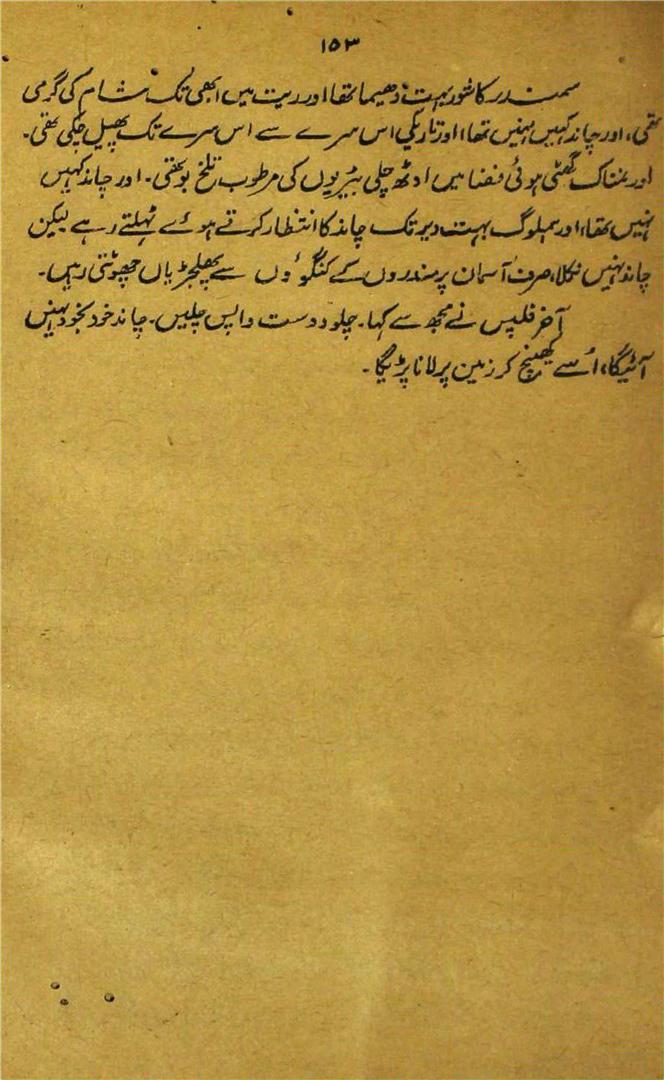 ۱۵۳
سمندر کا شور بہت دھیما تھا اور ریت میں ابھی تک شام کی گرمی
تھی، اور چاند کہیں نہیں تھا، اور تاریکی اس سرے سے اس سرے تک پھیل چکی تھی۔
اور نمناک گھٹی ہوئی فضا میں ادھ جلی بیڑیوں کی مرطوب تلخ بو تھی۔ اور چاند کہیں
نہیں تھا، اور ہملوگ بہت دیر تک چاند کا انتظار کرتے ہوئے ٹہلتے رہے لیکن
چاند نہیں نکلا، صرف آسمان پر مندروں کے کنگوؤں سے پھلجڑیاں چھوٹتی رہیں۔
آخر فلپس نے مجھ سے کہا۔ چلو دوست واپس چلیں۔ چاند خود بخود نہیں
آئیگا، اُسے کھینچ کر زمین پر لانا پڑیگا۔